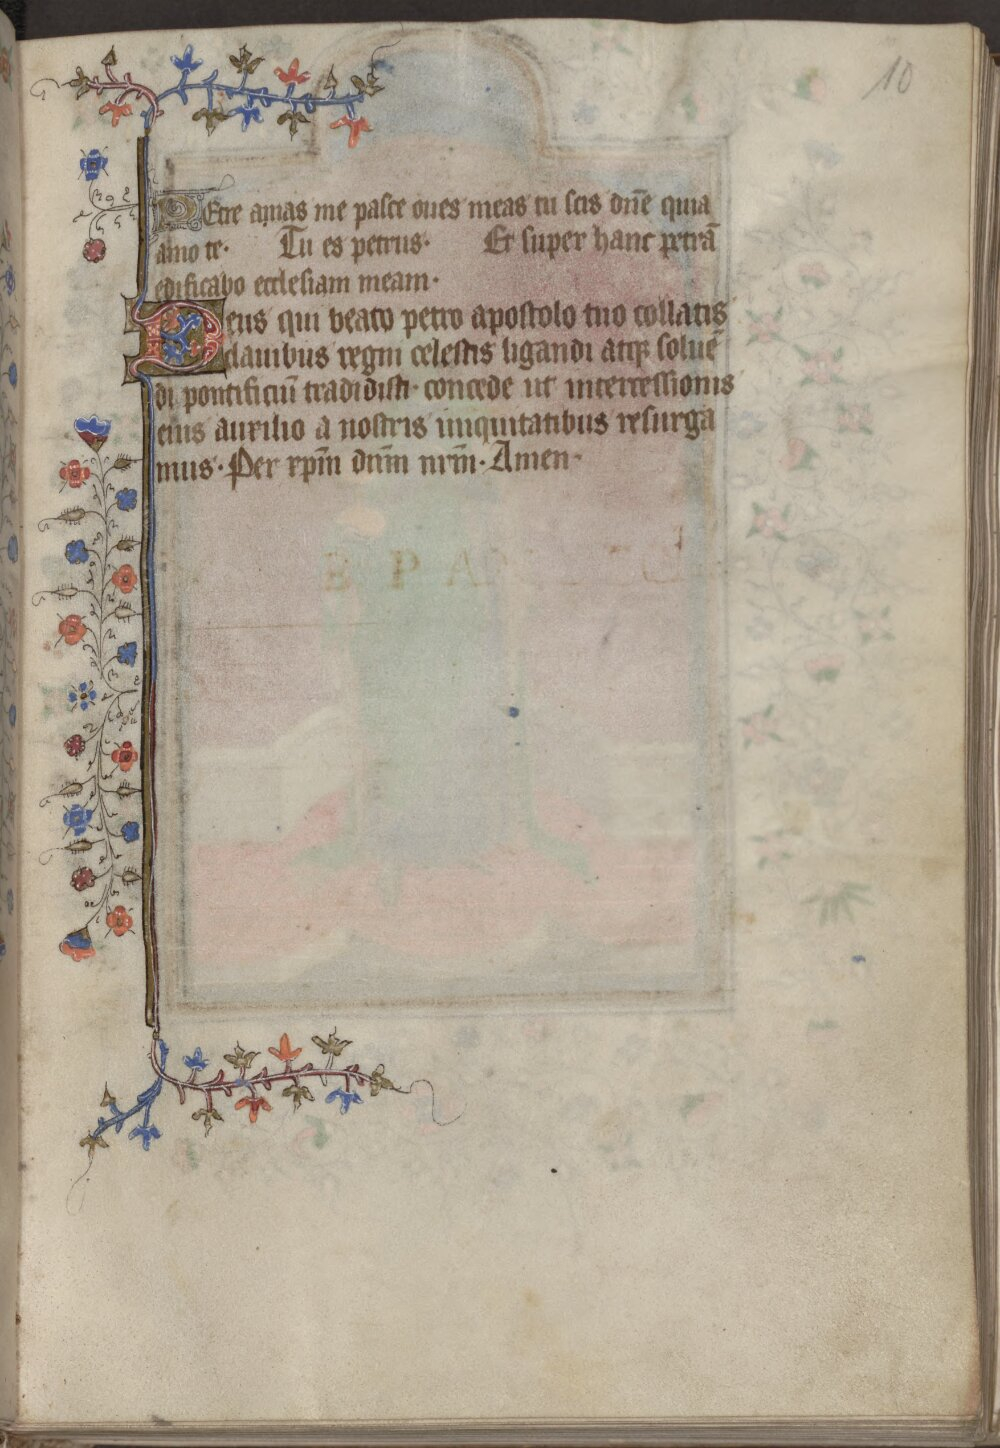 10
Petre amas me pasce oues meas tu scis dn̄e quia
amo te. Tu es petrus. Et super hanc petrā
edificabo ecclesiam meam.
Deus qui beato petro apostolo tuo collatis
clauibus regni celestis ligandi atq; soluē
di pontificiū tradidisti. concede ut intercessionis
eius auxilio a nostris iniquitatibus resurga
mus. Per xp̄m dn̄m nr̄m. Amen.